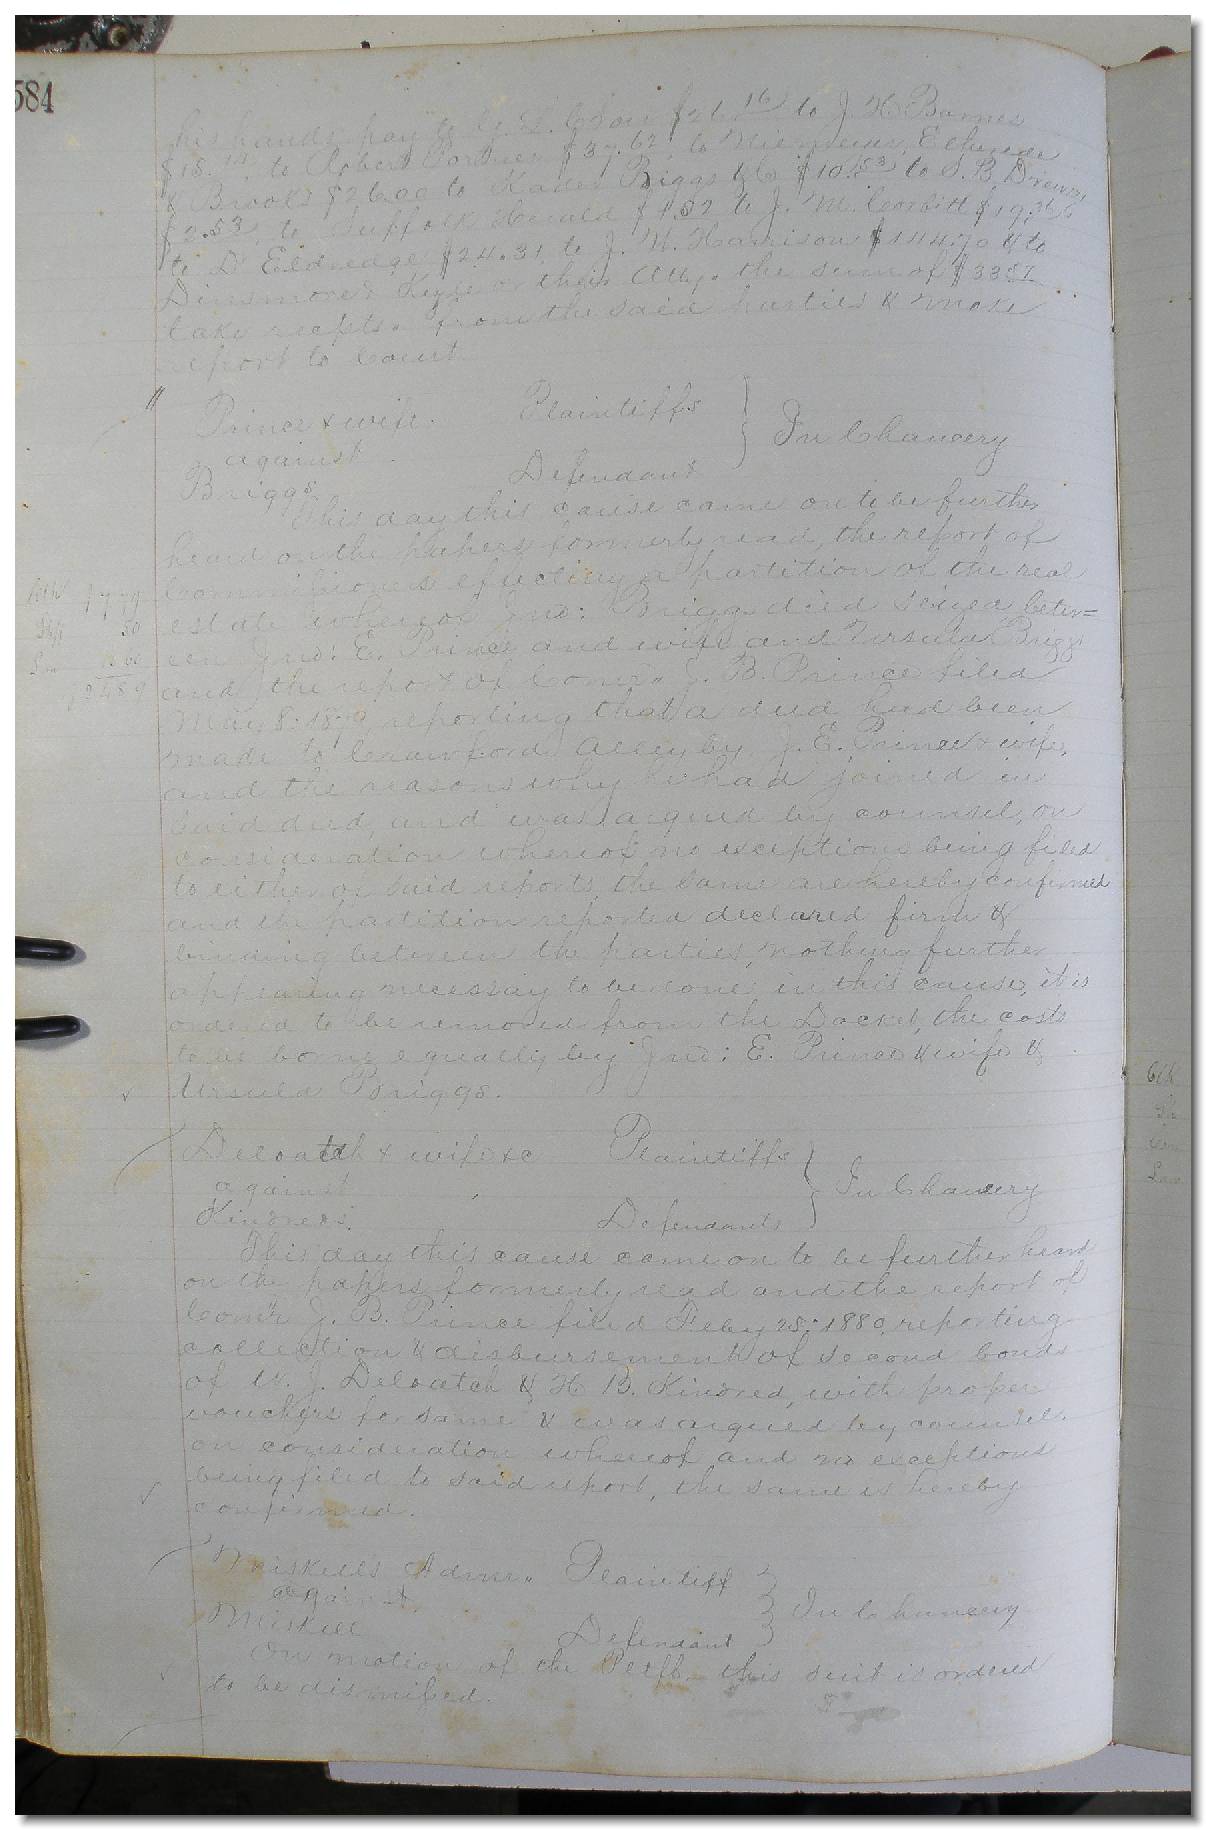 584
his hands pay to G. L. & Son $26.16 to J. H Barnes
$18. to Robert $37.62, to
& Brooks $26.00 to Kader Biggs & Co $10.53 to S. B. Drewry
$2.53, to Suffolk Herald $4.52 to J. M. Corbitt $19.36
to D Eldredge $24.31, to J. H. Harrison $144.70 & to
Dinsmore & or their Atty. the sum of $
take recepts. from the said parties & make
report to Court.
Prince & wife. Plaintiffs
against In Chancery
Briggs Defendant
This day this cause came on to be further
heard on the papers formerly read, the report of
Commissioners effecting a partition of the real
estate whereof Jno: Briggs died seized betw=
een Jno: E. Prince and wife and Ursula Briggs
and the report of Comr. J. B. Prince filed
May 8: 1879 reporting that a deed had been
made to Crawford Alley by J. E. Prince & wife,
and the reasons why he had joined in
said deed, and was argued by counsel, on
consideration whereof no exceptions being filed
to either of said reports, the same are hereby confirmed
and the partition reported declared firm &
binding between the parties, nothing further
appearing necessary to be done in this cause, it is
ordered to be removed from the Docket, the costs
to be borne equally by Jno: E. Prince & wife &
Ursula Briggs.
Deloatch & wife &c Plaintiffs
against In Chancery
Kindred. Defendants
This day this cause came on to be further heard
on the papers formerly read and the report of
Comr J. B. Prince filed Feby 28: 1880, reporting
collection & disbursement of second bonds
of W. J. Deloatch & H B. Kindred, with proper
vouchers for same & was argued by counsel.
on consideration whereof and no exceptions
being filed to said report, the same is hereby
confirmed.
Miskell's Admr. Plaintiff
against In Chancery
Miskell Defendant
On motion of the Pltff. this suit is ordered
to be dismissed.